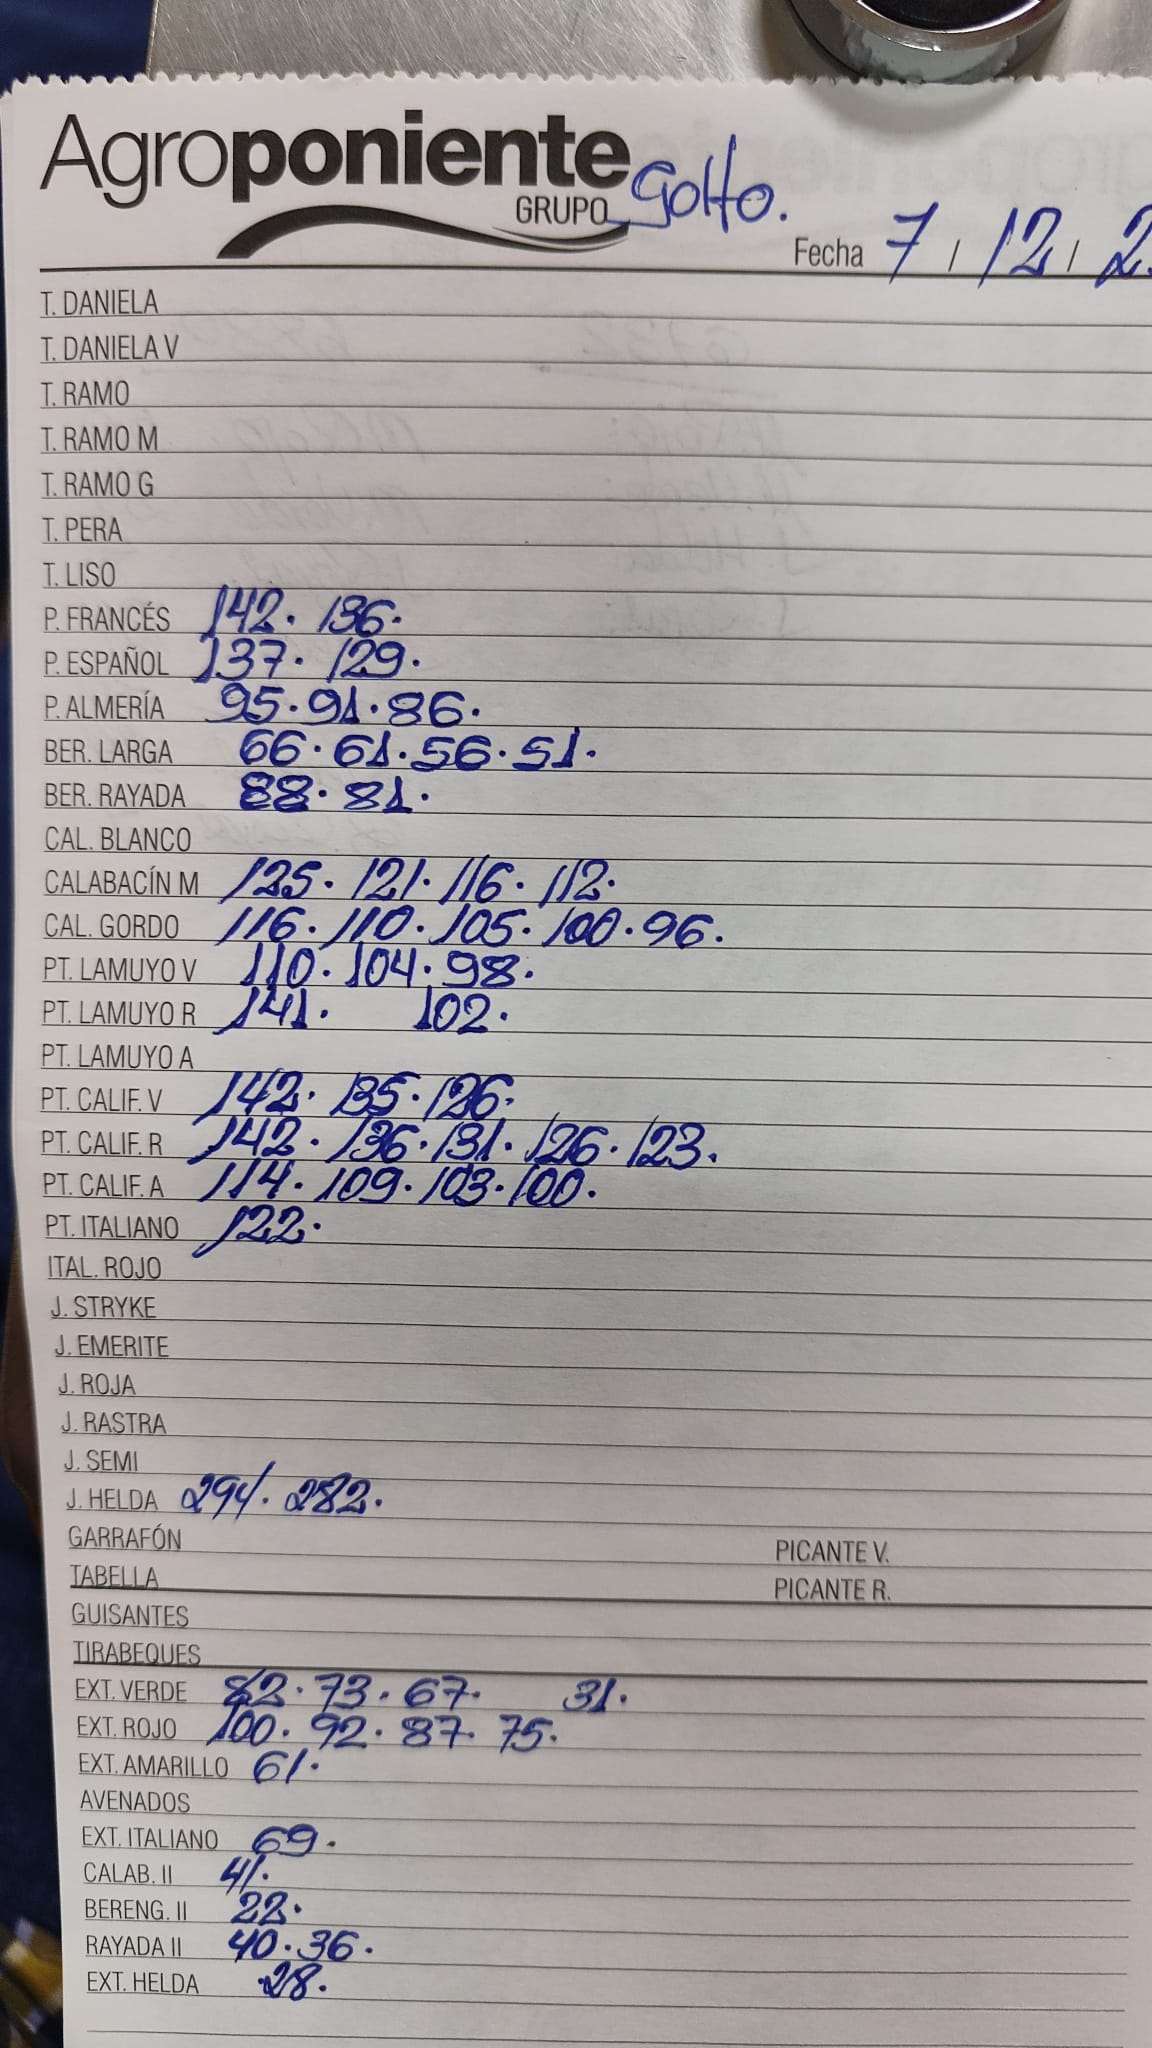 Agroponiente
GRUPO
Golfo.
Fecha 7 / 12 / 2
T. DANIELA
T. DANIELA V
T. RAMO
T. RAMO M
T. RAMO G
T. PERA
T. LISO
P. FRANCÉS 142. 136.
P. ESPAÑOL 137. 129.
P. ALMERÍA 95. 91. 86.
BER. LARGA 66. 61. 56. 51.
BER. RAYADA 88. 81.
CAL. BLANCO
CALABACÍN M 125. 121. 116. 112.
CAL. GORDO 116. 110. 105. 100. 96.
PT. LAMUYO V 110. 104. 98.
PT. LAMUYO R 141. 102.
PT. LAMUYO A
PT. CALIF. V 142. 135. 126.
PT. CALIF. R 142. 136. 131. 126. 123.
PT. CALIF. A 114. 109. 103. 100.
PT. ITALIANO 122.
ITAL. ROJO
J. STRYKE
J. EMERITE
J. ROJA
J. RASTRA
J. SEMI
J. HELDA 294. 282.
GARRAFÓN PICANTE V.
TABELLA PICANTE R.
GUISANTES
TIRABEQUES
EXT. VERDE 82. 73. 67. 31.
EXT. ROJO 100. 92. 87. 75.
EXT. AMARILLO 61.
AVENADOS
EXT. ITALIANO 69.
CALAB. II 41.
BERENG. II 22.
RAYADA II 40. 36.
EXT. HELDA 28.